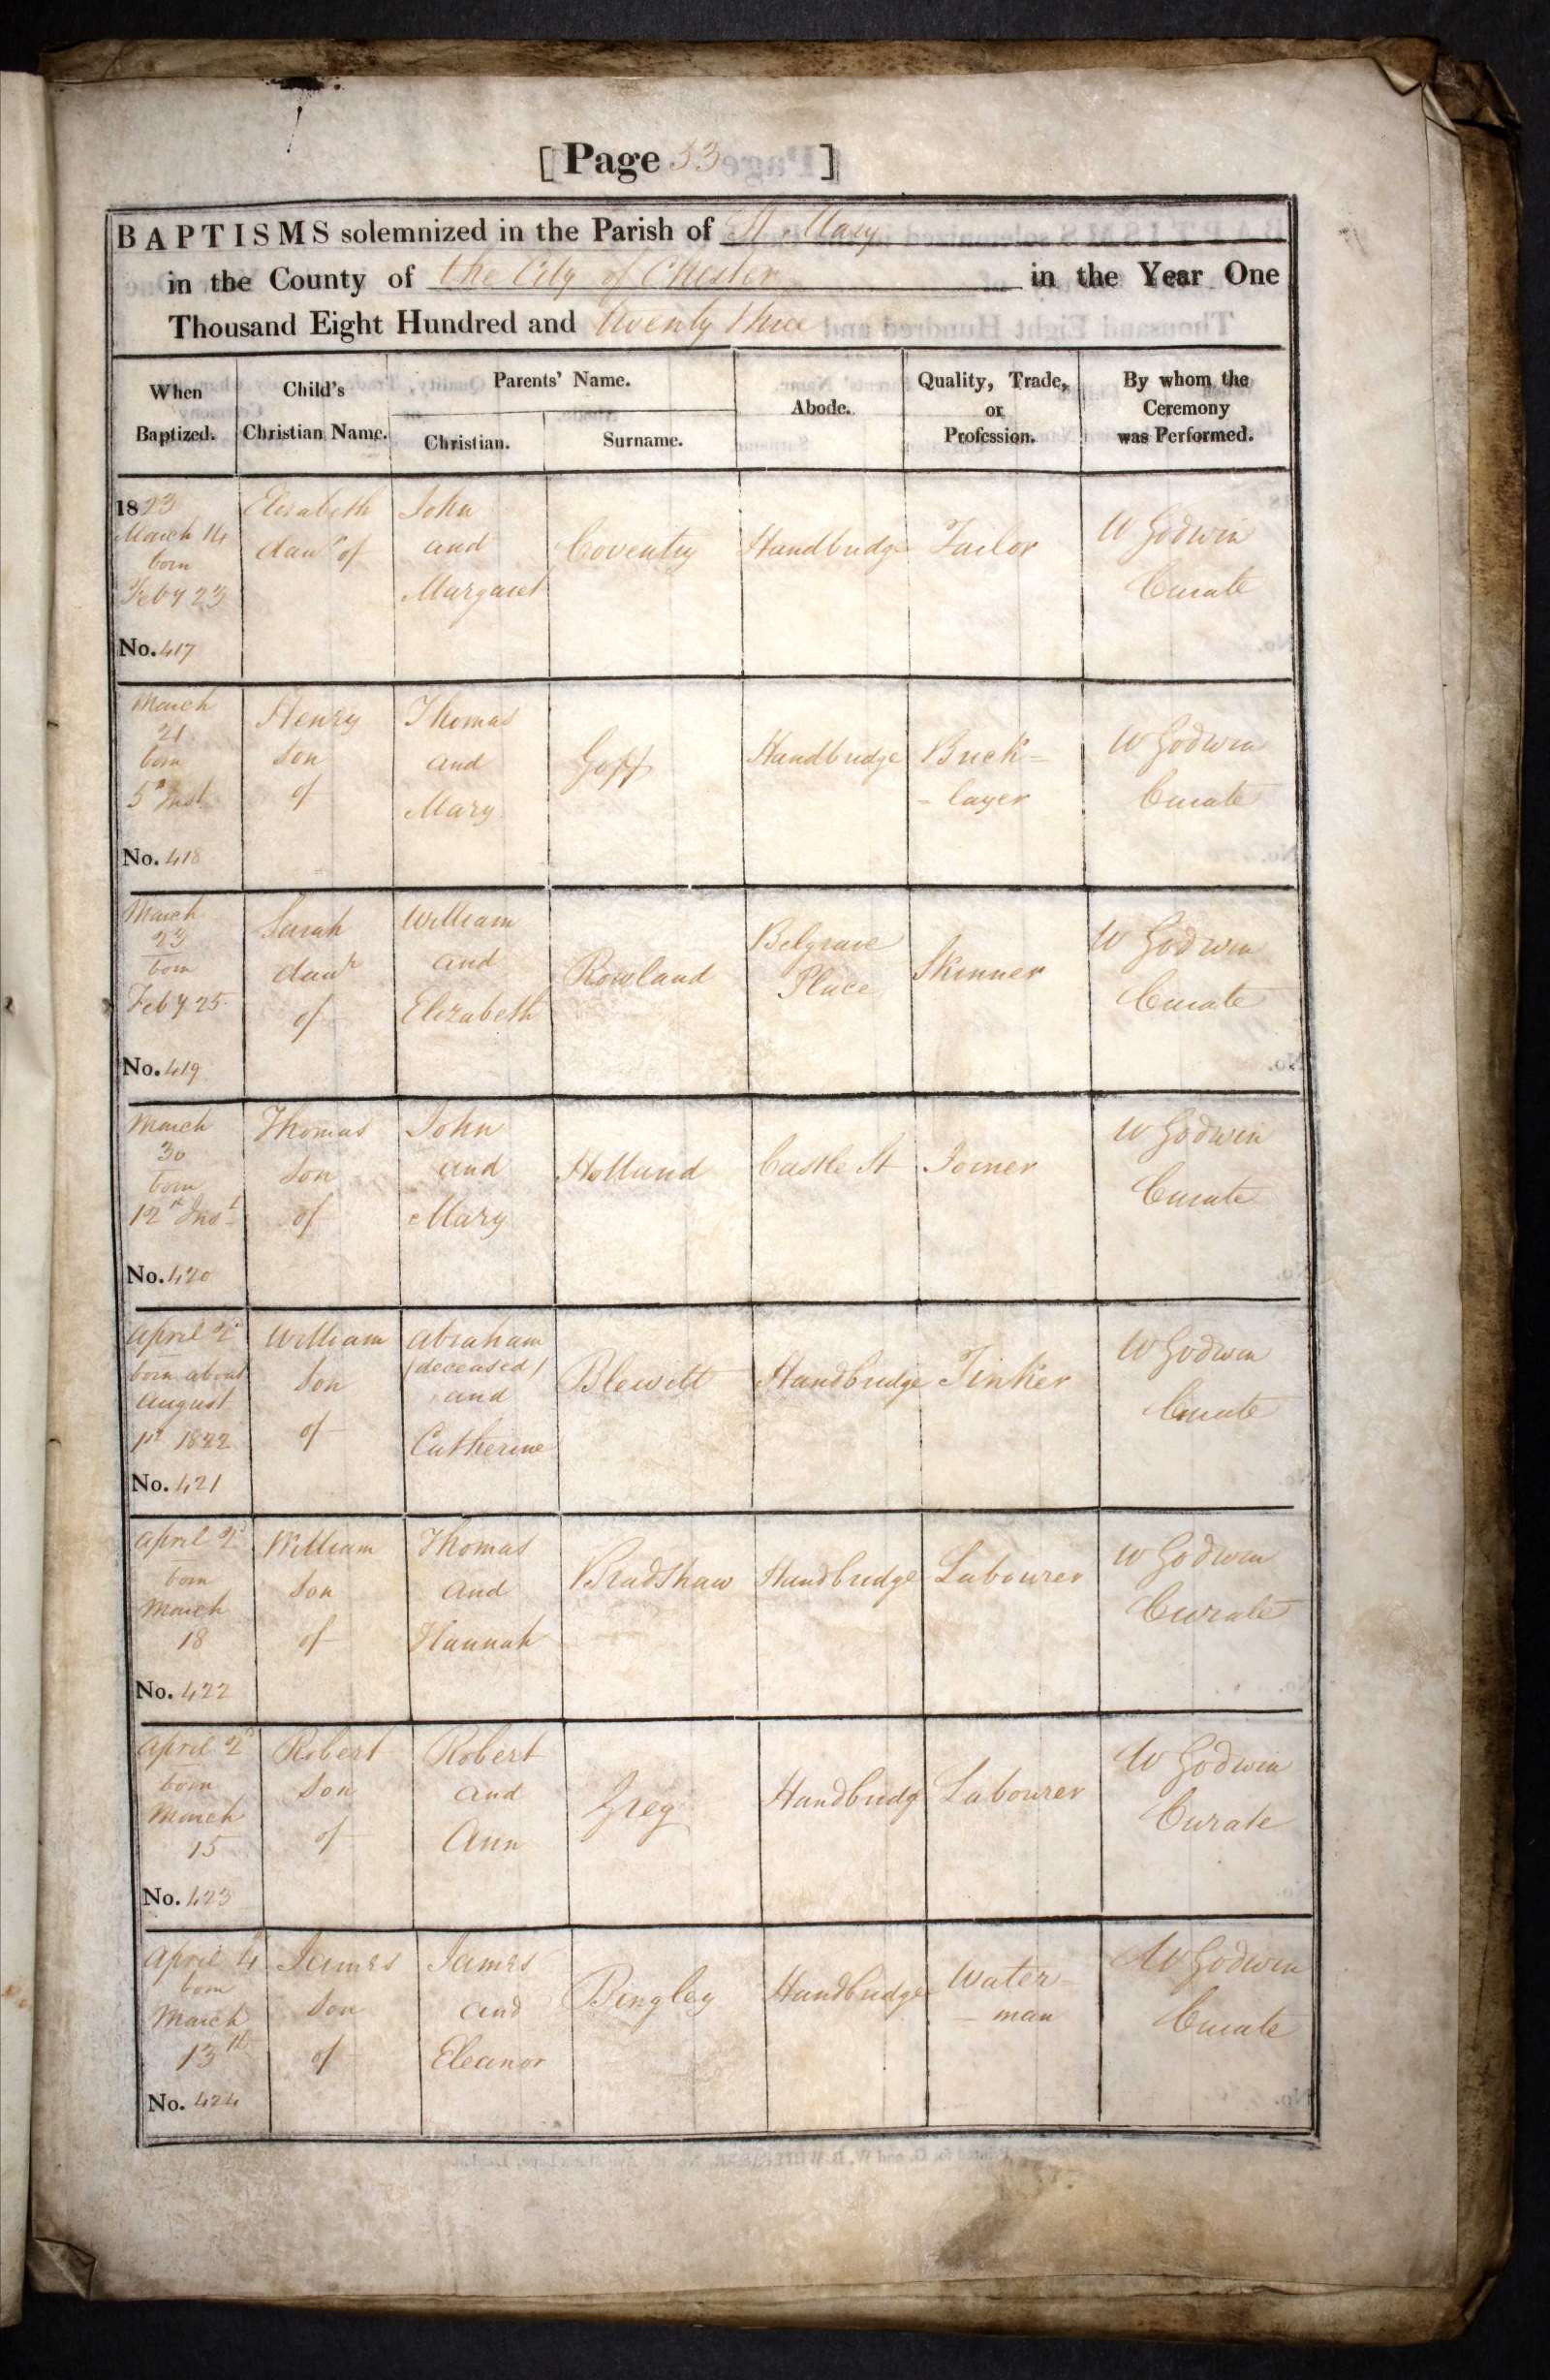 [Page 53]
BAPTISMS solemnized in the Parish of St. Mary
in the County of the City of Chester in the Year One
Thousand Eight Hundred and twenty three
When Baptized.
Child's Christian Name.
Parents' Name.
Christian.
Surname.
Abode.
Quality, Trade, or Profession.
By whom the Ceremony was Performed.
1823
March 14
born
Feby 23
No. 417
Elizabeth
daur of
John
and
Margaret
Coventry
Handbridge
Tailor
W Godwin
Curate
March
21
born
5th Inst
No. 418
Henry
son
of
Thomas
and
Mary
Goff
Handbridge
Brick=
=layer
W Godwin
Curate
March
23
born
Feby 25
No. 419
Sarah
daur
of
William
and
Elizabeth
Rowland
Belgrave
Place
Skinner
W Godwin
Curate
March
30
born
12th Inst
No. 420
Thomas
son
of
John
and
Mary
Holland
Castle St
Joiner
W Godwin
Curate
April 2d
born about
August
1st 1822
No. 421
William
son
of
Abraham
(deceased)
and
Catherine
Blewitt
Handbridge
Tinker
W Godwin
Curate
April 2d
born
March
18
No. 422
William
son
of
Thomas
and
Hannah
Bradshaw
Handbridge
Labourer
W Godwin
Curate
April 2d
born
March
15
No. 423
Robert
son
of
Robert
and
Ann
Greg
Handbridg
Labourer
W Godwin
Curate
April 4
born
March
13th
No. 424
James
son
of
James
and
Eleanor
Bingley
Handbridge
Water-
-man
W Godwin
Curate